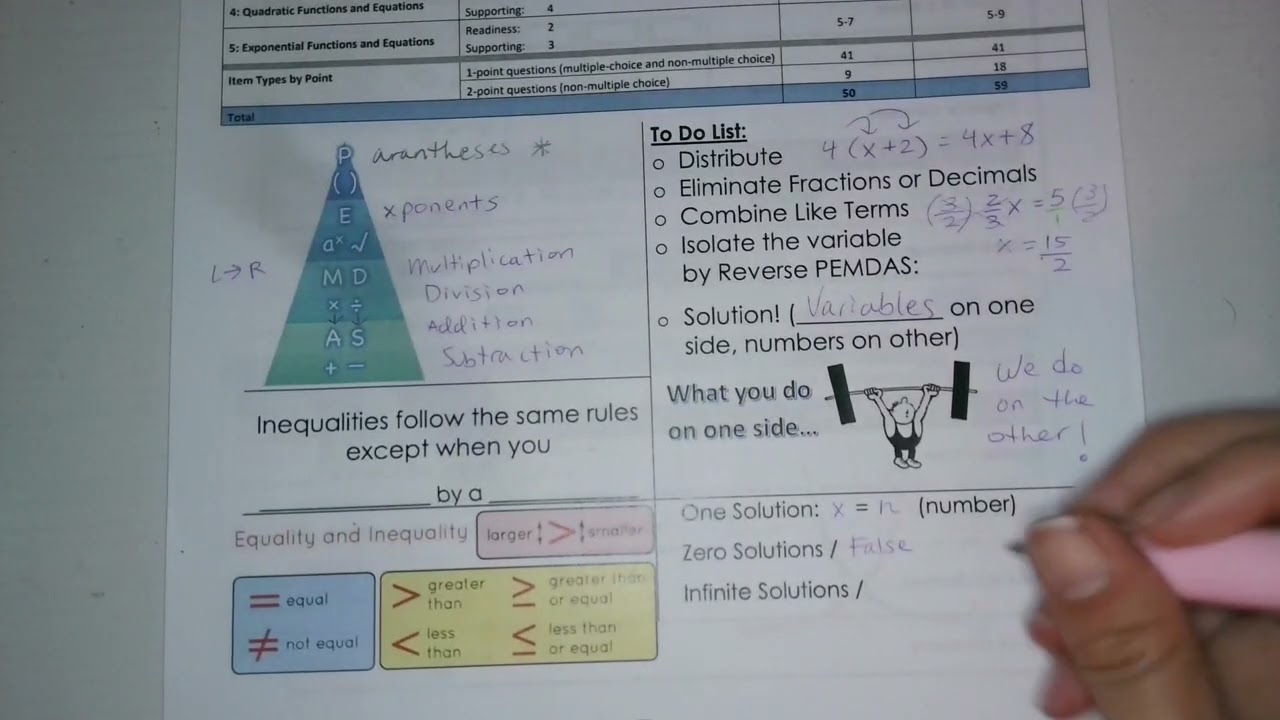 4: Quadratic Functions and Equations
Supporting: 4
Readiness: 2
5-7
5-9
5: Exponential Functions and Equations
Supporting: 3
Item Types by Point
1-point questions (multiple-choice and non-multiple choice)
41
41
2-point questions (non-multiple choice)
9
18
Total
50
59
P arantheses *
( )
E xponents
aˣ √
L→R
M D
Multiplication
× ÷
Division
A S
Addition
+ −
Subtraction
To Do List:
Distribute 4(x+2) = 4x+8
Eliminate Fractions or Decimals
Combine Like Terms (3/2) 2/3 x = 5/1 (3/2)
Isolate the variable x = 15/2
by Reverse PEMDAS:
Solution! ( Variables on one
side, numbers on other)
What you do
on one side...
We do
on the
other!
Inequalities follow the same rules
except when you
____________ by a ____________
Equality and Inequality
larger > smaller
= equal
≠ not equal
> greater
than
≥ greater than
or equal
< less
than
≤ less than
or equal
One Solution: x = n (number)
Zero Solutions / False
Infinite Solutions /